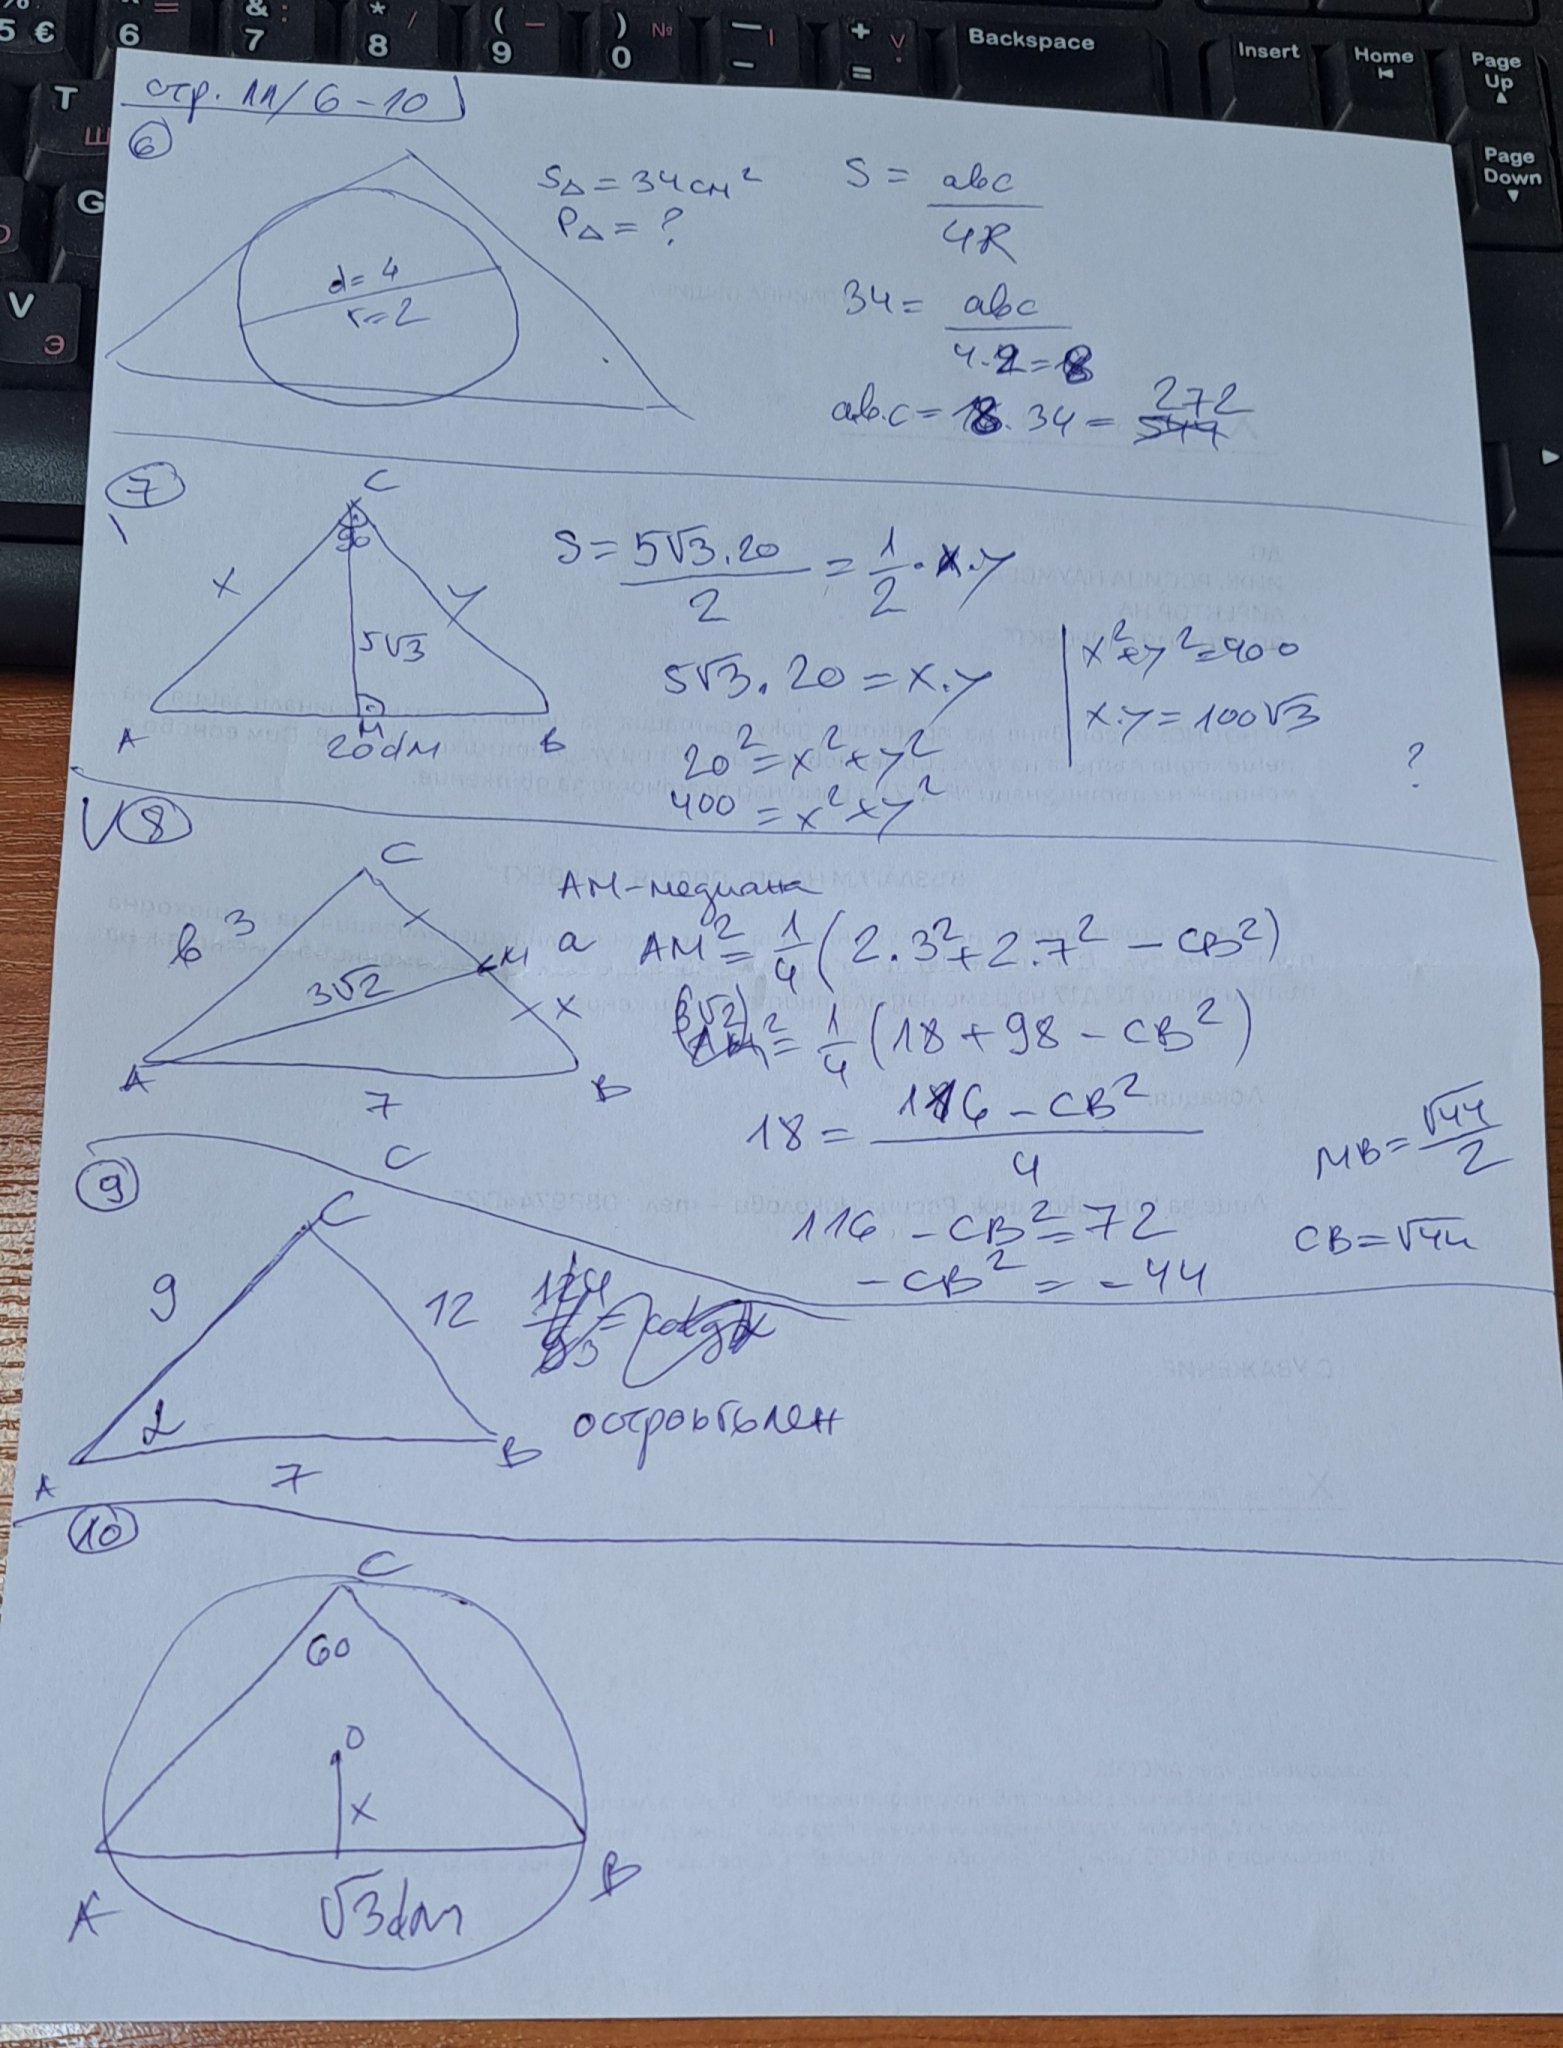 5 €
6
& 7
* 8
( 9
) 0 №
— -
+ =
Backspace
Insert
Home
Page Up
Page Down
T Ш
G
V Э
стр. 11/ 6-10
6
S△ = 34 см²
P△ = ?
d=4
r=2
S = abc / 4R
34 = abc / 4.2=8
ab.c = 8.34 = 272
544
7
C
90
x
y
5√3
A
M
B
20dm
S = 5√3.20 / 2 = 1/2 . x.y
5√3.20 = x.y
20² = x²+y²
400 = x²+y²
x²+y²=400
x.y = 100√3
?
V 8
C
b
3
M
a
3√2
x
A
B
7
AM-медиана
AM² = 1/4 (2.3²+2.7² - CB²)
(3√2)² = 1/4 (18 + 98 - CB²)
18 = 116 - CB² / 4
116 - CB² = 72
- CB² = - 44
MB = √44 / 2
CB = √44
9
C
C
9
12
α
A
7
B
остроъгълен
10
C
60
O
x
A
B
√3dm